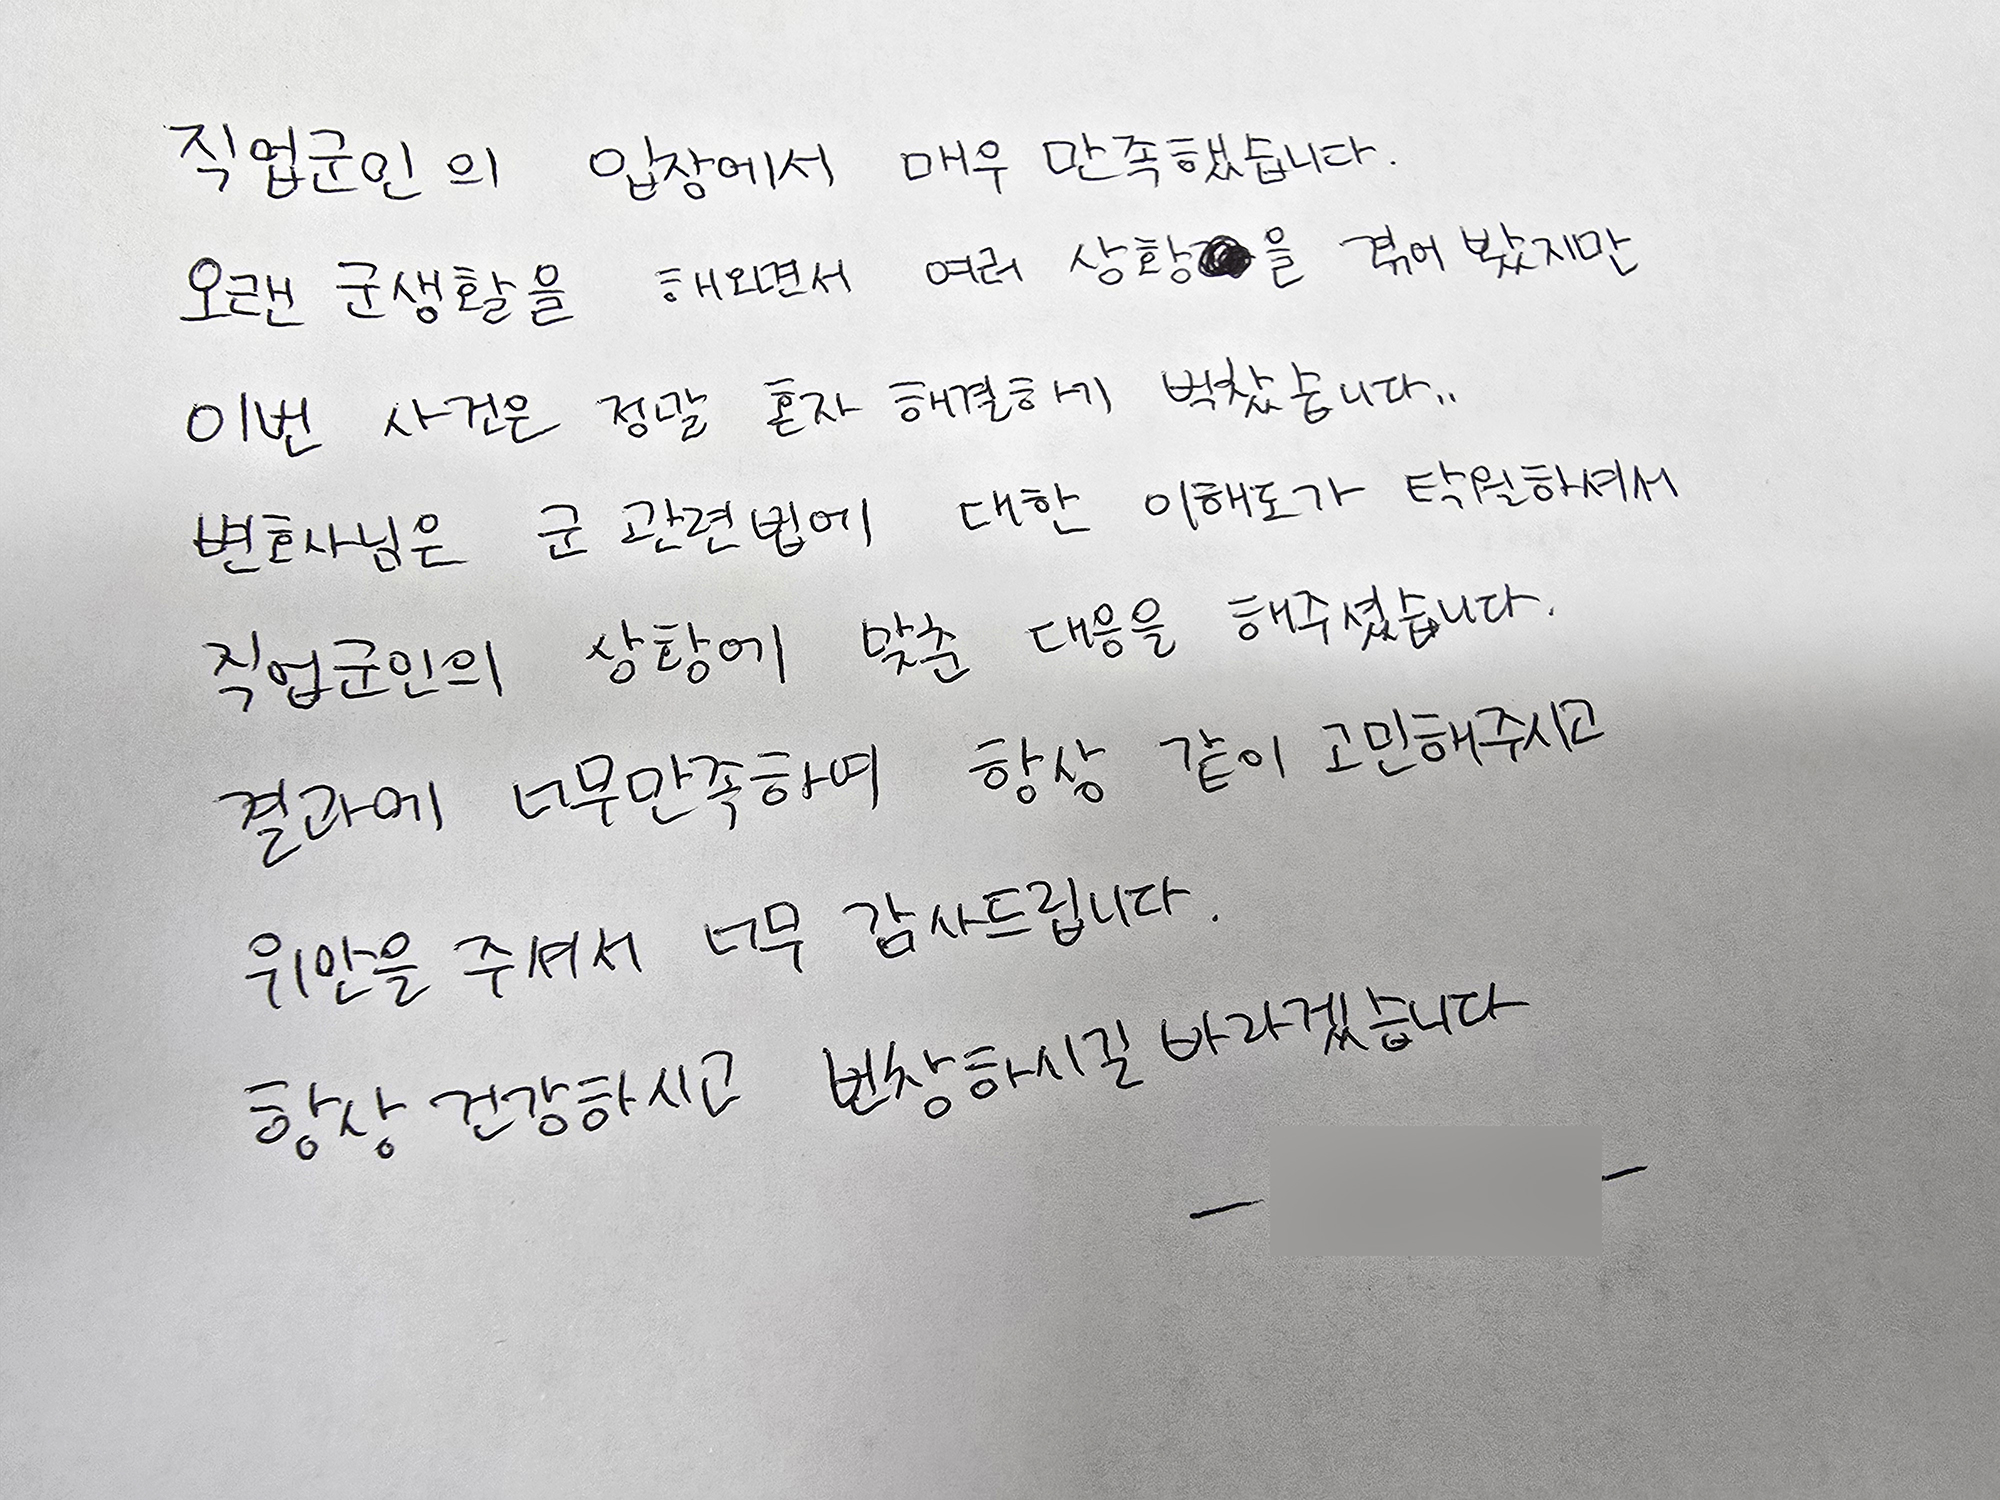 직업군인의 입장에서 매우 만족했습니다.
오랜 군생활을 해오면서 여러 상황을 겪어 봤지만
이번 사건은 정말 혼자 해결하기 벅찼습니다..
변호사님은 군 관련법에 대한 이해도가 탁월하셔서
직업군인의 상황에 맞춘 대응을 해주셨습니다.
결과에 너무만족하며 항상 같이 고민해주시고
위안을 주셔서 너무 감사드립니다.
항상 건강하시고 번창하시길 바라겠습니다